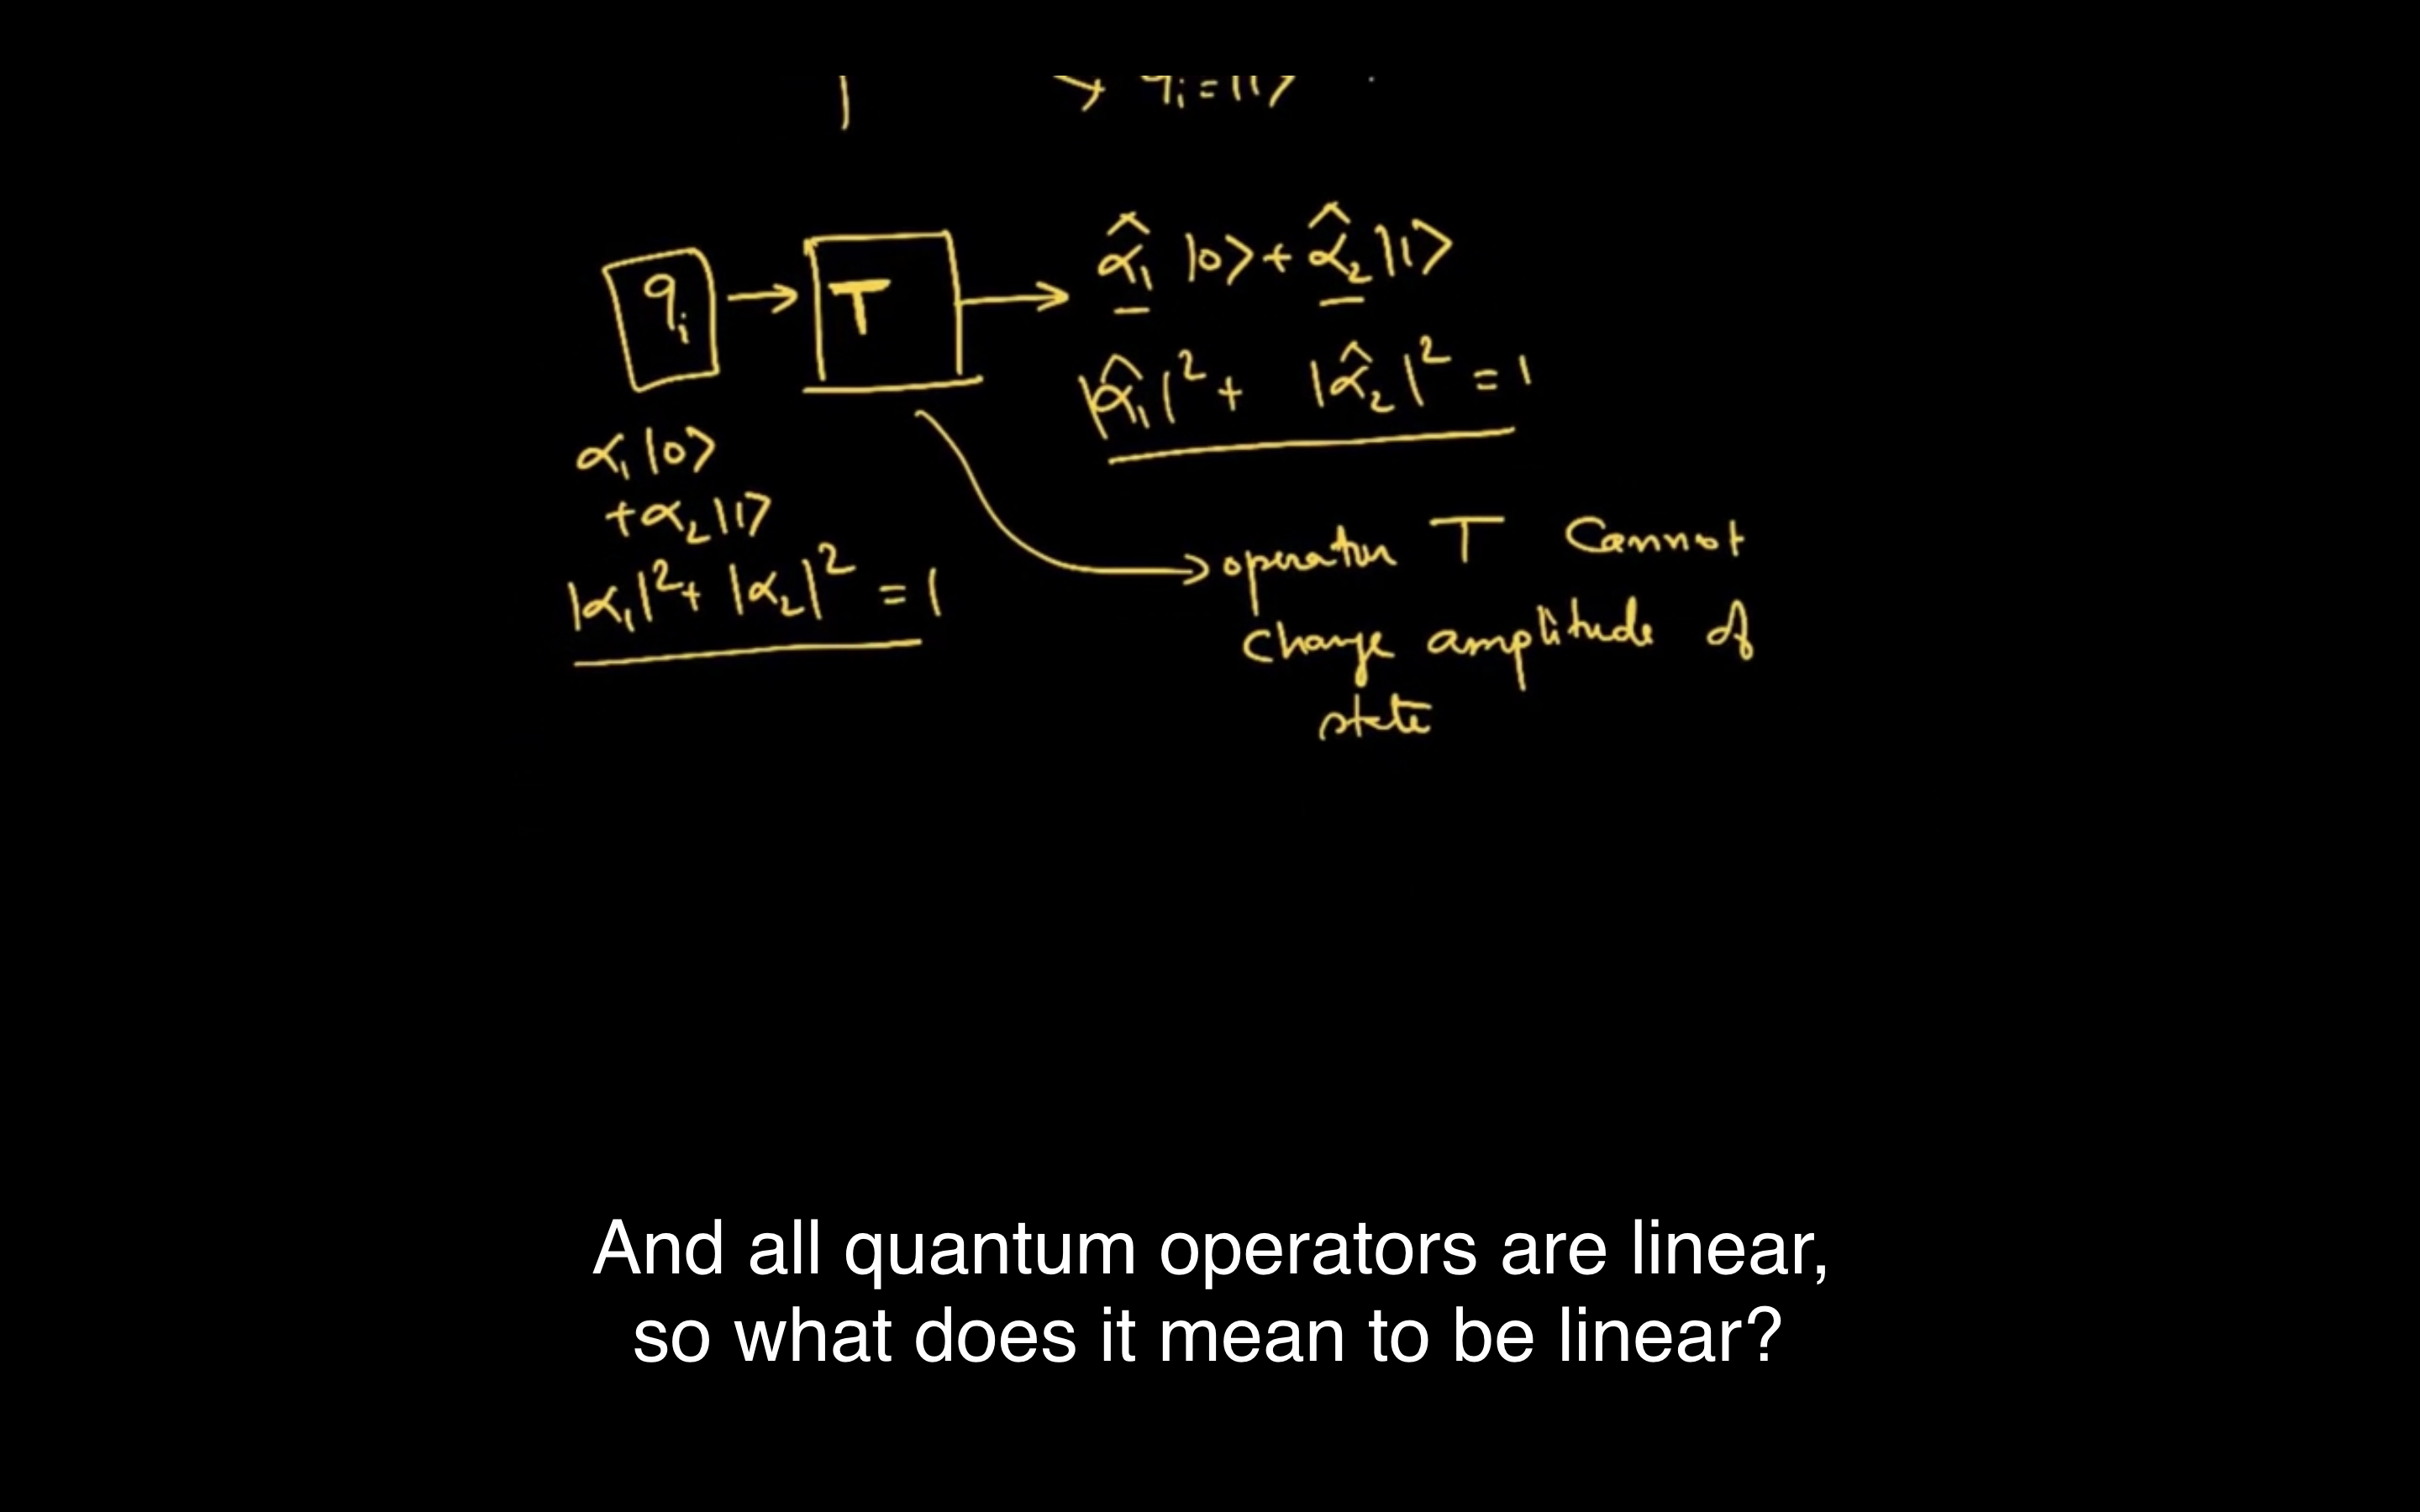 qᵢ = |1⟩
qᵢ → T → α̂₁ |0⟩ + α̂₂ |1⟩
|α̂₁|² + |α̂₂|² = 1
α₁ |0⟩
+ α₂ |1⟩
|α₁|² + |α₂|² = 1
operator T Cannot
change amplitude of
state
And all quantum operators are linear,
so what does it mean to be linear?